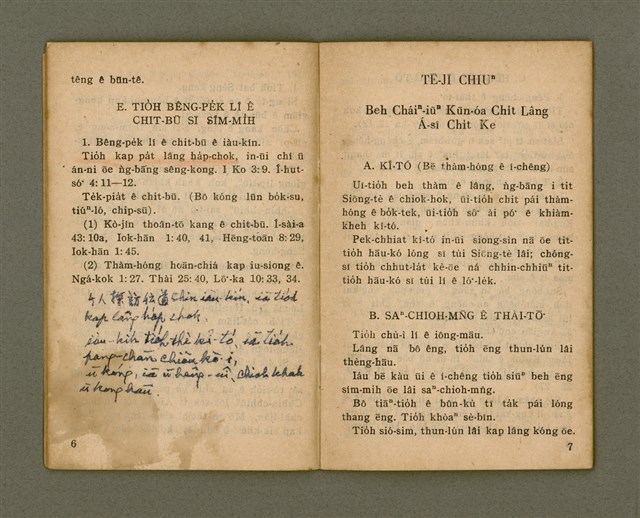 têng ê būn-tê.
E. TIO̍H BÊNG-PE̍K LÍ Ê
CHIT-BŪ SĪ SÍM-MI̍H
1. Bêng-pe̍k lí ê chit-bū ê iàu-kín.
Tio̍h kap pa̍t lâng ha̍p-chok, in-ūi chí ū
án-ni ōe ǹg-bāng sêng-kong. I Ko 3:9. Í-hut-
só͘ 4:11—12.
Te̍k-pia̍t ê chit-bū. (Bô kóng lūn bo̍k-su,
tiúⁿ-ló, chip-sū).
(1) Kò-jîn thoân-tō kang ê chit-bū. Í-sài-a
43:10a, Iok-hān 1:40, 41, Hēng-toān 8:29,
Iok-hān 1:45.
(2) Thàm-hóng hoān-chiá kap iu-siong ê.
Ngá-kok 1:27. Thài 25:40, Lō͘-ka 10:33, 34.
个人探訪伝道 chin iàu-kín, iā tio̍h
kap lâng ha̍p chok.
iàu-kín tio̍h thè kî-tó, iā tio̍h
pang-chān chiàu kò͘-i,
ū kong, iā ū
ū kong hāu.
6
TĒ-JĪ CHIUⁿ
Beh Cháiⁿ-iūⁿ Kūn-óa Chit Lâng
Á-sī Chit Ke
A. KÎ-TÓ (Bē thàm-hóng ê í-chêng)
Ūi-tio̍h beh thàm ê lâng, ǹg-bāng i tit
Siōng-tè ê chiok-hok, ūi-tio̍h chit pái thàm-
hóng ê bo̍k-tek, ūi-tio̍h só͘ ài pó͘ ê khiàm-
kheh kî-tó.
Pek-chhiat kî-tó in-ūi siong-sìn nā ōe tit-
tio̍h hāu-kó lóng sī tùi Siōng-tè lâi; chóng-
sī tio̍h chhut-la̍t kè-ōe ná chhin-chhiūⁿ tit-
tio̍h hāu-kó sī tùi lí ê ló͘-le̍k.
B. SAⁿ-CHIOH-MN̄G Ê THÀI-TŌ͘
Tio̍h chù-ì lí ê iông-māu.
Lâng nā bô êng, tio̍h ēng thun-lún lâi
thèng-hāu.
Iáu bē kàu ūi ê í-chêng tio̍h siūⁿ beh ēng
sím-mih ōe lâi saⁿ-chioh-mn̄g.
Bô tiāⁿ-tio̍h ê būn-kù tī ta̍k pái lóng
thang ēng. Tio̍h khòaⁿ sè-bīn.
Tio̍h sió-sim, thun-lún lâi kap lâng kóng ōe.
7